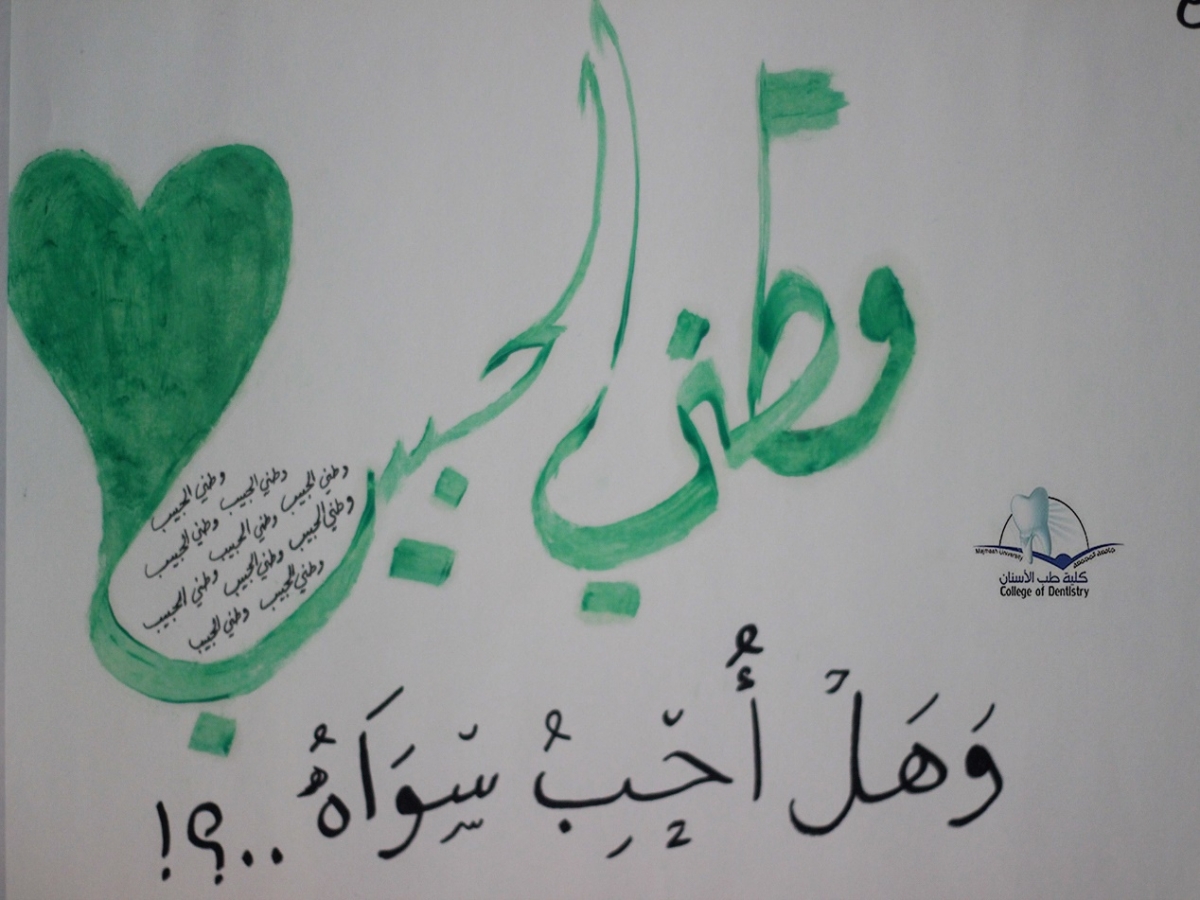 وطني الحبيب
وطني الحبيب وطني الحبيب وطني الحبيب
وطني الحبيب وطني الحبيب وطني الحبيب
وطني الحبيب وطني الحبيب وطني الحبيب
وطني الحبيب
وَهَلْ أُحِبُ سِوَاهُ ..؟!
Majmaah University
كلية طب الأسنان
College of Dentistry